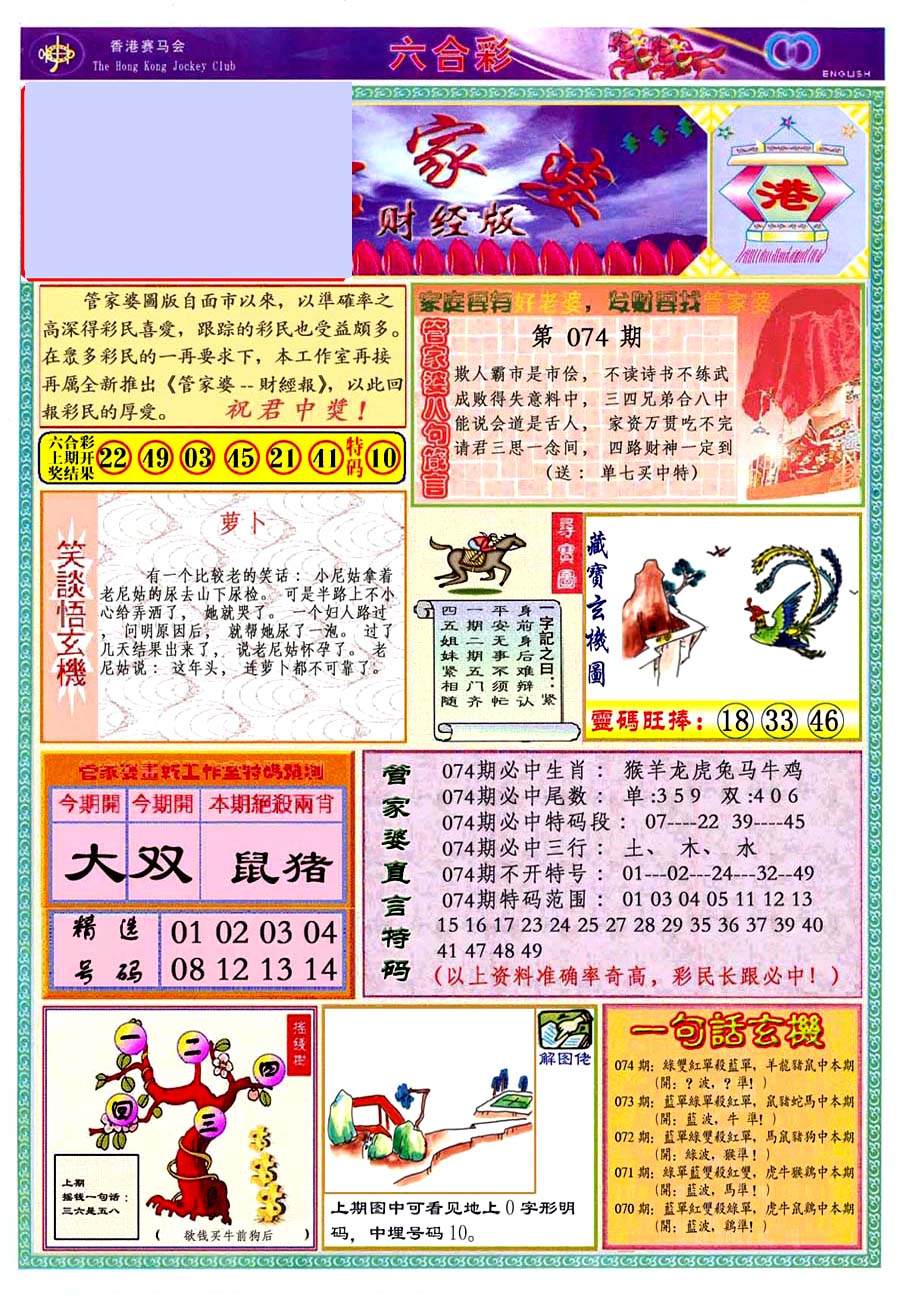 香港赛马会
The Hong Kong Jockey Club
六合彩
ENGLISH
家婆
财经版
港
管家婆圖版自面市以來，以準確率之
高深得彩民喜愛，跟踪的彩民也受益頗多。
在眾多彩民的一再要求下，本工作室再接
再厲全新推出《管家婆--財經報》，以此回
報彩民的厚爱。 祝君中獎！
家庭要有好老婆，发财要找管家婆
管家婆八句箴言
第 074 期
欺人霸市是市侩， 不读诗书不练武
成败得失意料中， 三四兄弟合八中
能说会道是舌人， 家资万贯吃不完
请君三思一念间， 四路财神一定到
(送： 单七买中特)
六合彩
上期开
奖结果
22 49 03 45 21 41 特码 10
笑談悟玄機
萝卜
有一个比较老的笑话： 小尼姑拿着
老尼姑的尿去山下尿检。 可是半路上不小
心给弄洒了， 她就哭了。 一个妇人路过
， 问明原因后， 就帮她尿了一泡。 过了
几天结果出来了， 说老尼姑怀孕了。 老
尼姑说： 这年头， 连萝卜都不可靠了。
尋寶圖
一字記之曰：紧
身前身后难辩认
平安无事不须忙
一期二期五门齐
四五姐妹紧相随
藏寶玄機圖
靈碼旺捧： 18 33 46
管家婆畫新工作室特碼預測
今期開 今期開 本期絕殺兩肖
大 双 鼠猪
精选号码
01 02 03 04
08 12 13 14
管家婆直言特码
074期必中生肖： 猴羊龙虎兔马牛鸡
074期必中尾数： 单:3 5 9 双:4 0 6
074期必中特码段： 07----22 39----45
074期必中三行： 土、 木、 水
074期不开特号： 01---02---24---32--49
074期特码范围： 01 03 04 05 11 12 13
15 16 17 23 24 25 27 28 29 35 36 37 39 40
41 47 48 49
(以上资料准确率奇高，彩民长跟必中！)
摇钱樹
一
二
四
回
三
上期
摇钱一句话：
三六是五八
( 欲钱买牛前狗后 )
解图佬
上期图中可看见地上0字形明
码，中埋号码10。
一句話玄機
074期：綠雙紅單殺藍單，羊龍豬鼠中本期
(開：？波，？準！)
073期：藍單綠單殺紅單，鼠豬蛇馬中本期
(開：藍波，牛準！)
072期：藍單綠雙殺紅單，馬鼠豬狗中本期
(開：綠波，猴準！)
071期：綠單藍雙殺紅雙，虎牛猴鷄中本期
(開：藍波，馬準！)
070期：藍單紅雙殺綠單，虎牛鼠鷄中本期
(開：藍波，鷄準！)